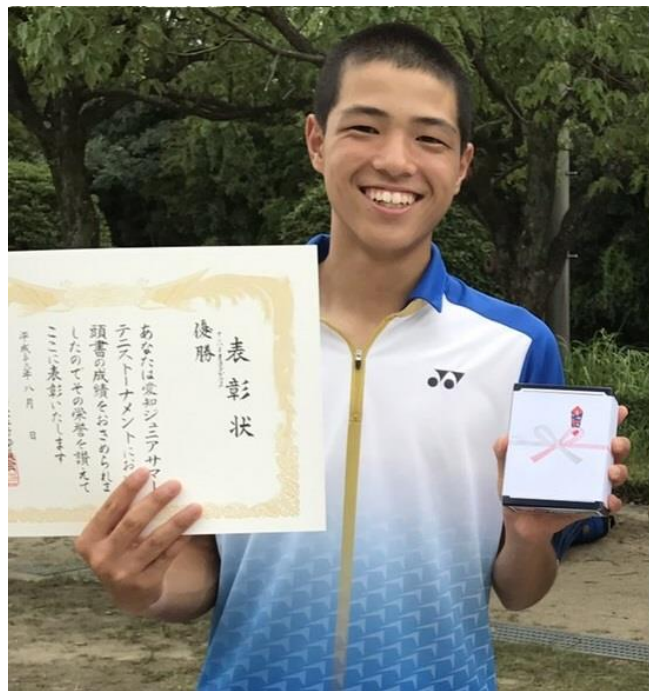 表彰状
優勝
あなたは愛知ジュニアサマー
テニストーナメントにお
頭書の成績をおさめられま
したのでその栄誉を讃えて
ここに表彰いたします
八月 日